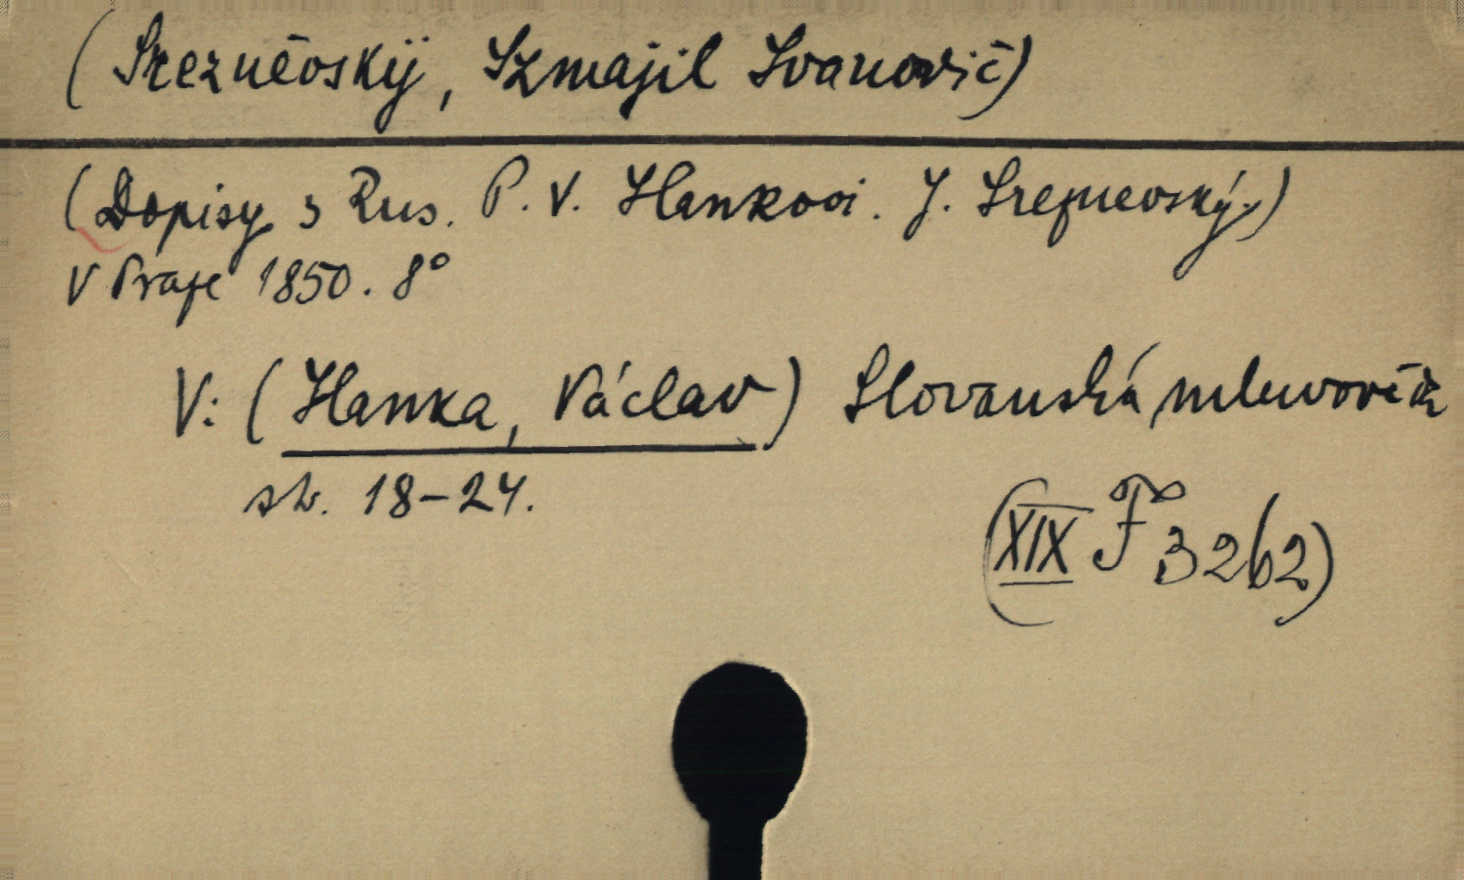 (Srezněvskÿ, Izmajil Ivanovič)
(Dopisy z Rus. P. V. Hankovi. J. Srezněvský.)
V Praze 1850. 8°
V: (Hanka, Václav) Slovanská mluvověda
str. 18-24.
(XIX F 3262)